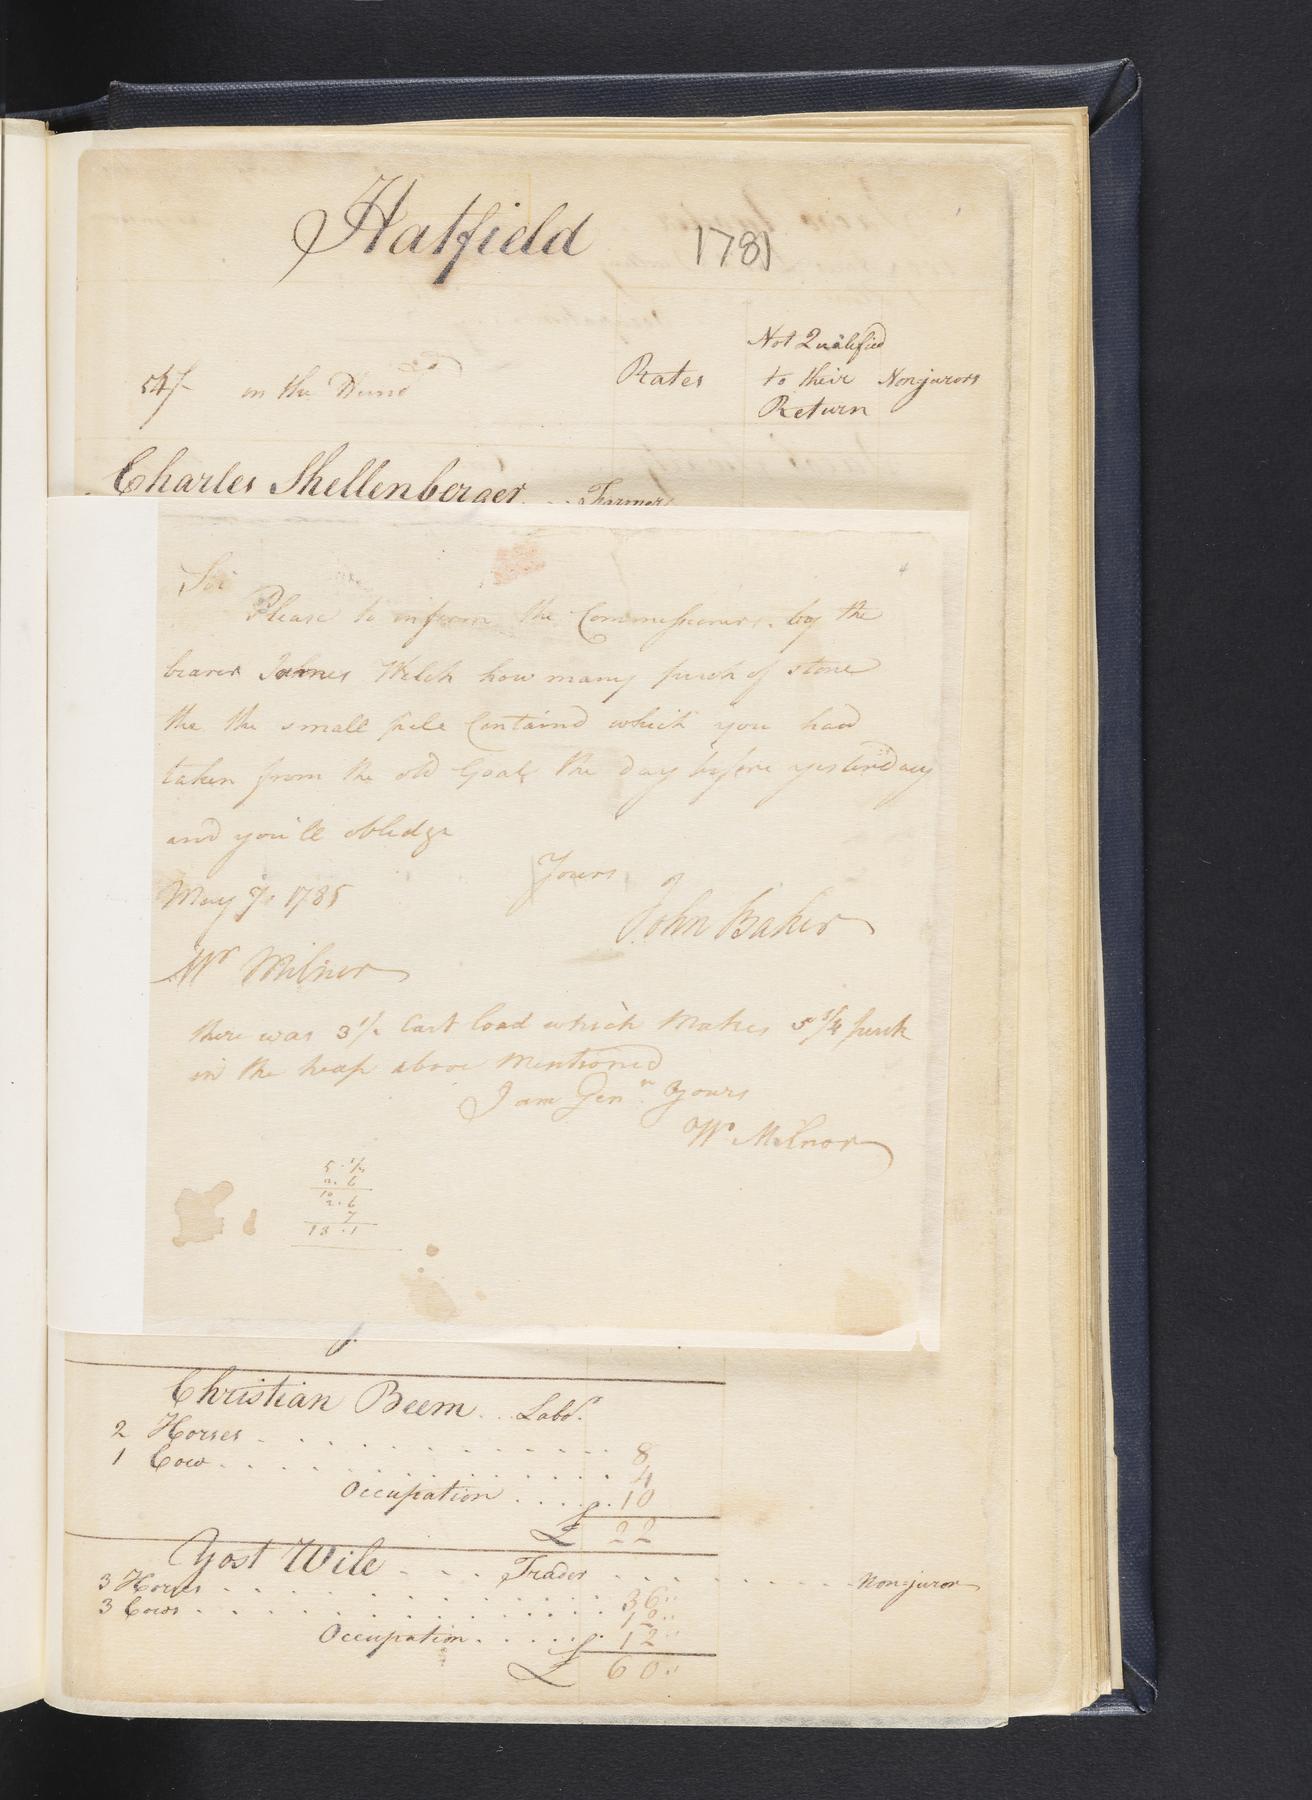 Hatfield 1781
Not Qualified
54/- on the Hund Rates to their Nonjurors
Return
Charles Shellenberger ... Farmer
Sir
Please to inform the Commissioners by the
bearer James Welch how many perch of stone
the the small pile Containd which you had
taken from the old Goal the day before yesterday
and you'll obledge
Yours
May 7. 1785
John Baker
Mr Milner
there was 3 1/2 Cart load which Makes 5 1/4 perch
in the heap above Mentioned
I am Genn. Yours
Wm Milnor
5. 1/2
2. 6
10
2. 6
7
13. 1
Christian Beem .. Labr.
2 Horses . . . 8
1 Cow . . . 4
Occupation . . . . 10
£ 22
Yost Wile - - - Trader . . . Non=juror
3 Horses . . . 36"
3 Cows . . . 12"
Occupation . . . . 12"
£ 60"